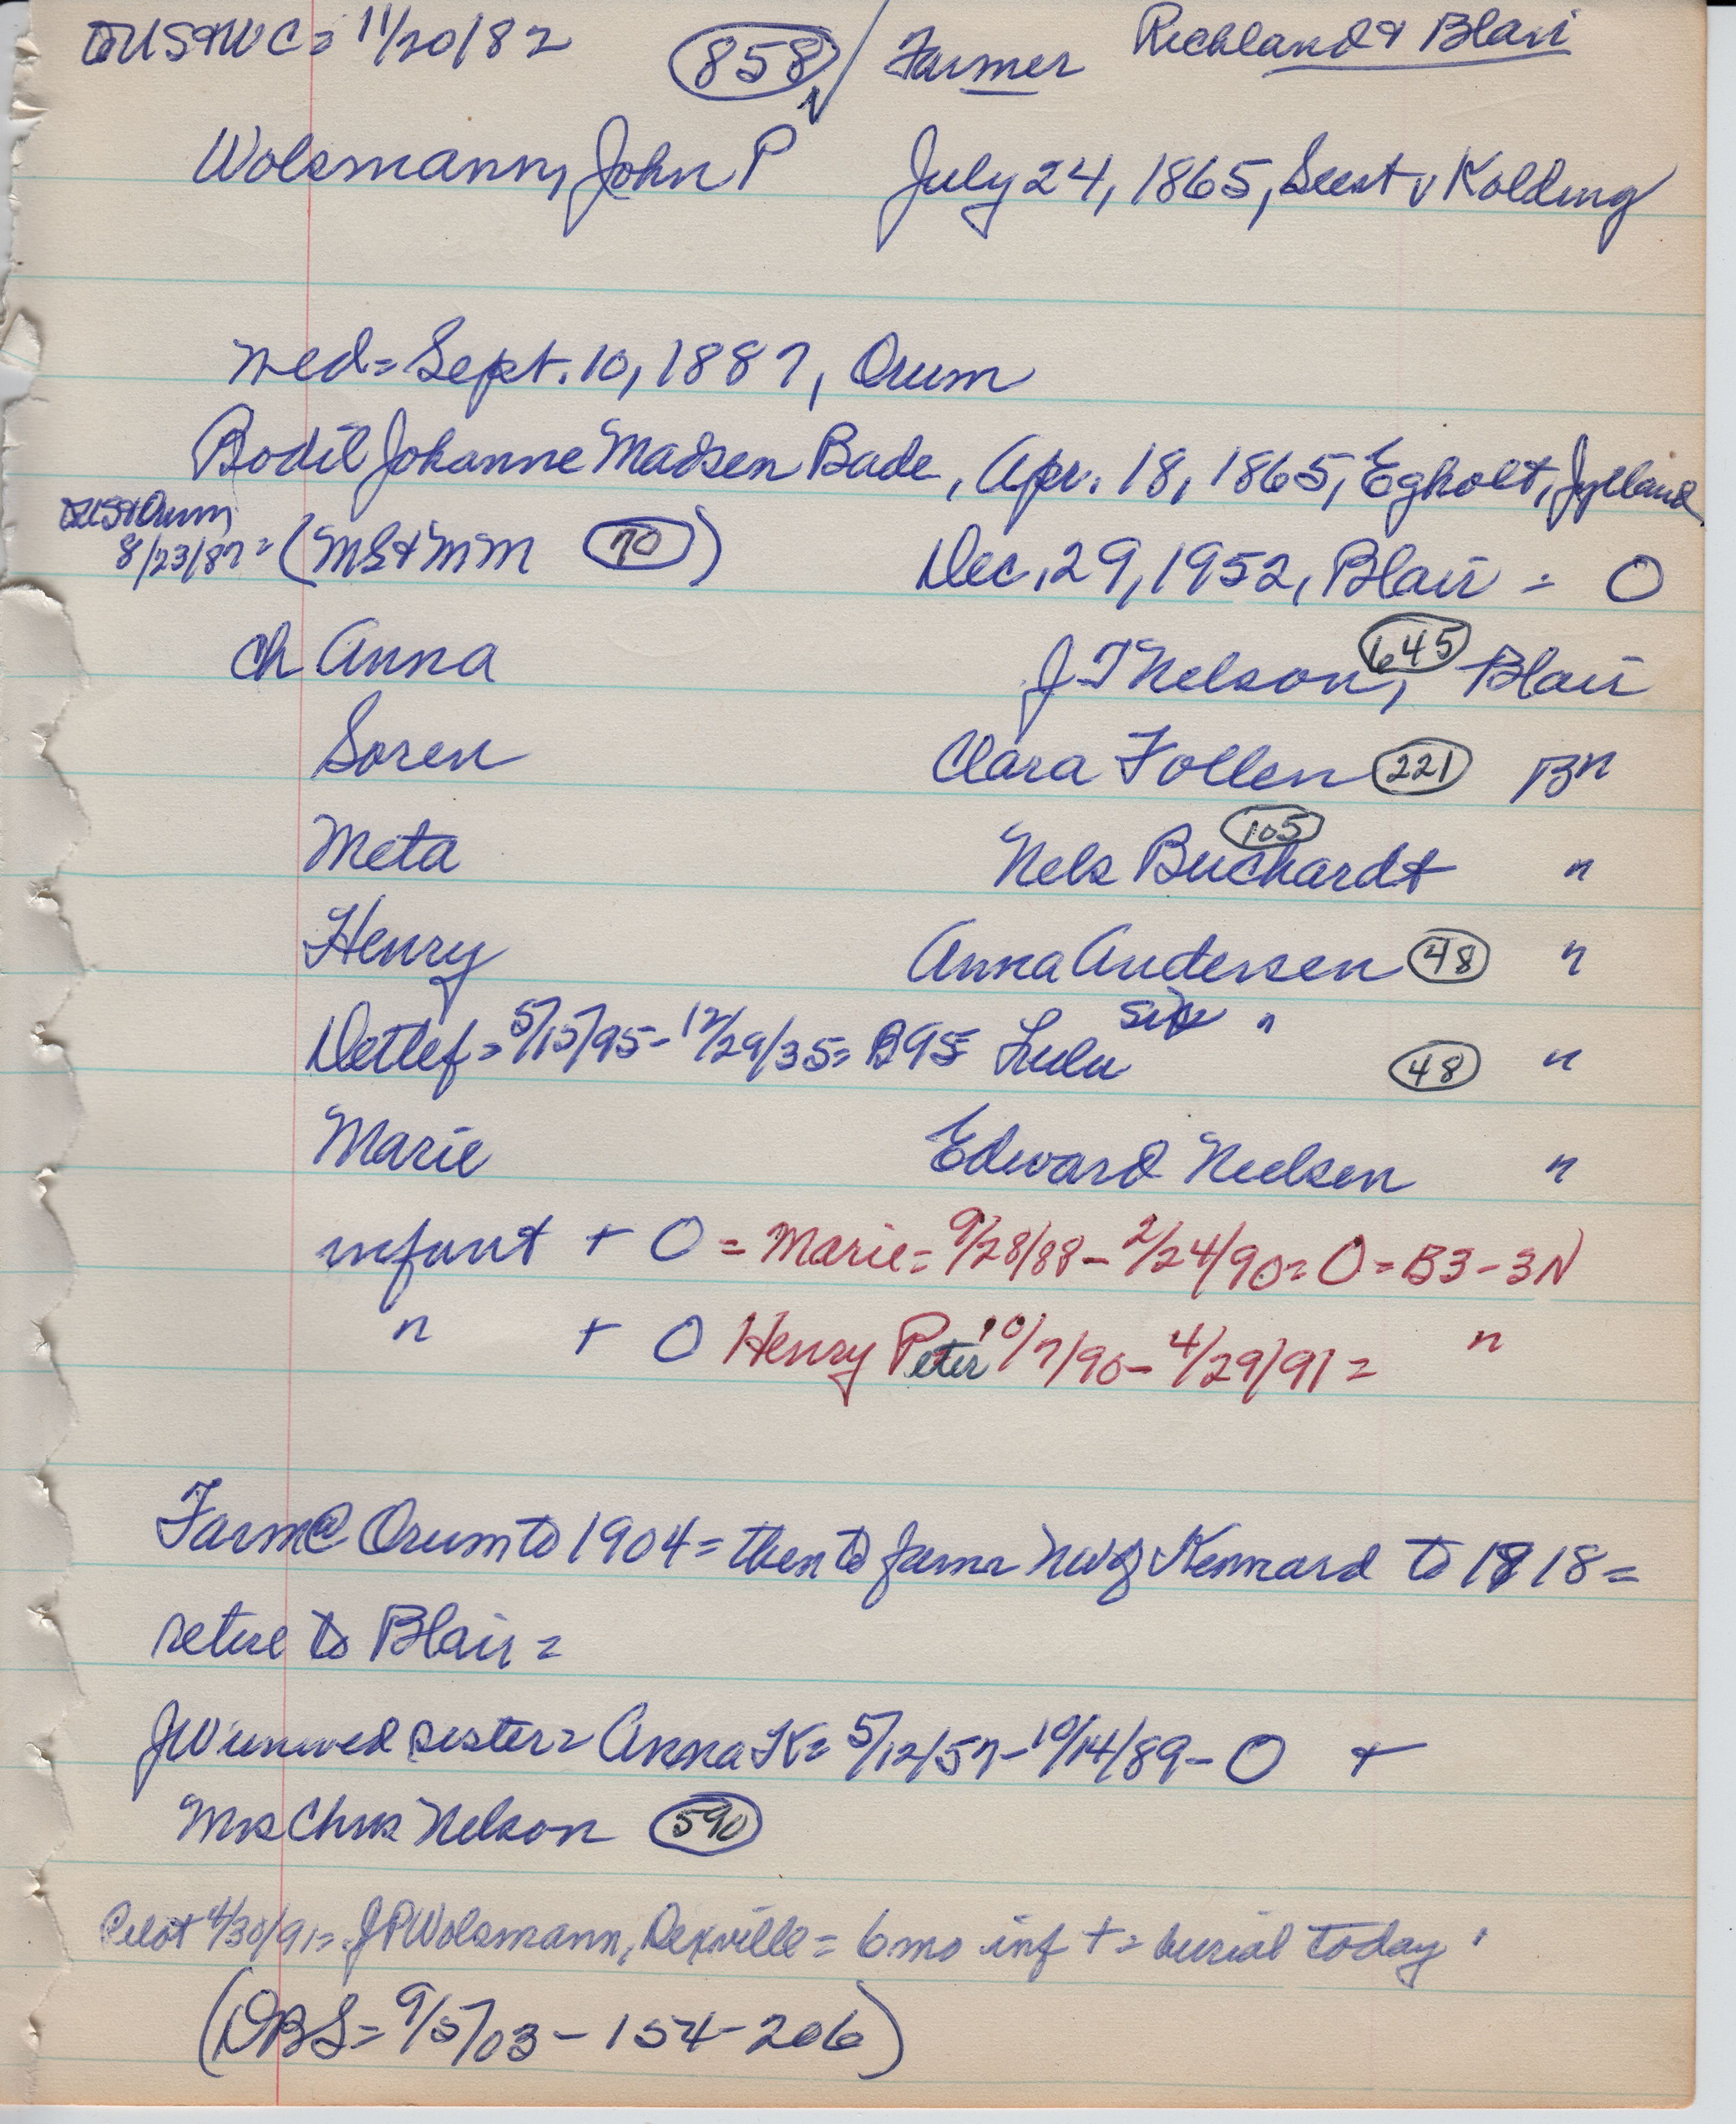 US+WC = 11/20/82 (858) √ Farmer Richland + Blair
Wolsmann, John P July 24, 1865, Seest v Kolding
wed = Sept. 10, 1887, Orum
Bodil Johanne Madsen Bade, Apr. 18, 1865, Egholt, Jylland
US+Orum
8/23/87 = (MS+MM (70)) Dec. 29, 1952, Blair = O
ch Anna J T Nelson, (645) Blair
Soren Clara Follen (221) Bn
Meta Nels Buchardt (105) "
Henry Anna Andersen (48) "
Detlef = 5/15/95 - 12/29/35 = B95 Lulu sis " (48) "
Marie Edward Nielsen "
infant + O = Marie = 9/28/88 - 2/24/90 = O = B3-3N
" + O Henry Peter 10/7/90 - 4/29/91 = "
Farm @ Orum to 1904 = then to farm NW of Kennard to 1918 =
retire to Blair =
JW unwed sister = Anna K = 5/12/57 - 10/14/89 - O +
Mrs Chris Nelson (590)
Pilot 4/30/91 = J P Wolsmann, Dexville = 6 mo inf + = burial today
(DBS = 9/5/03 - 154-206)